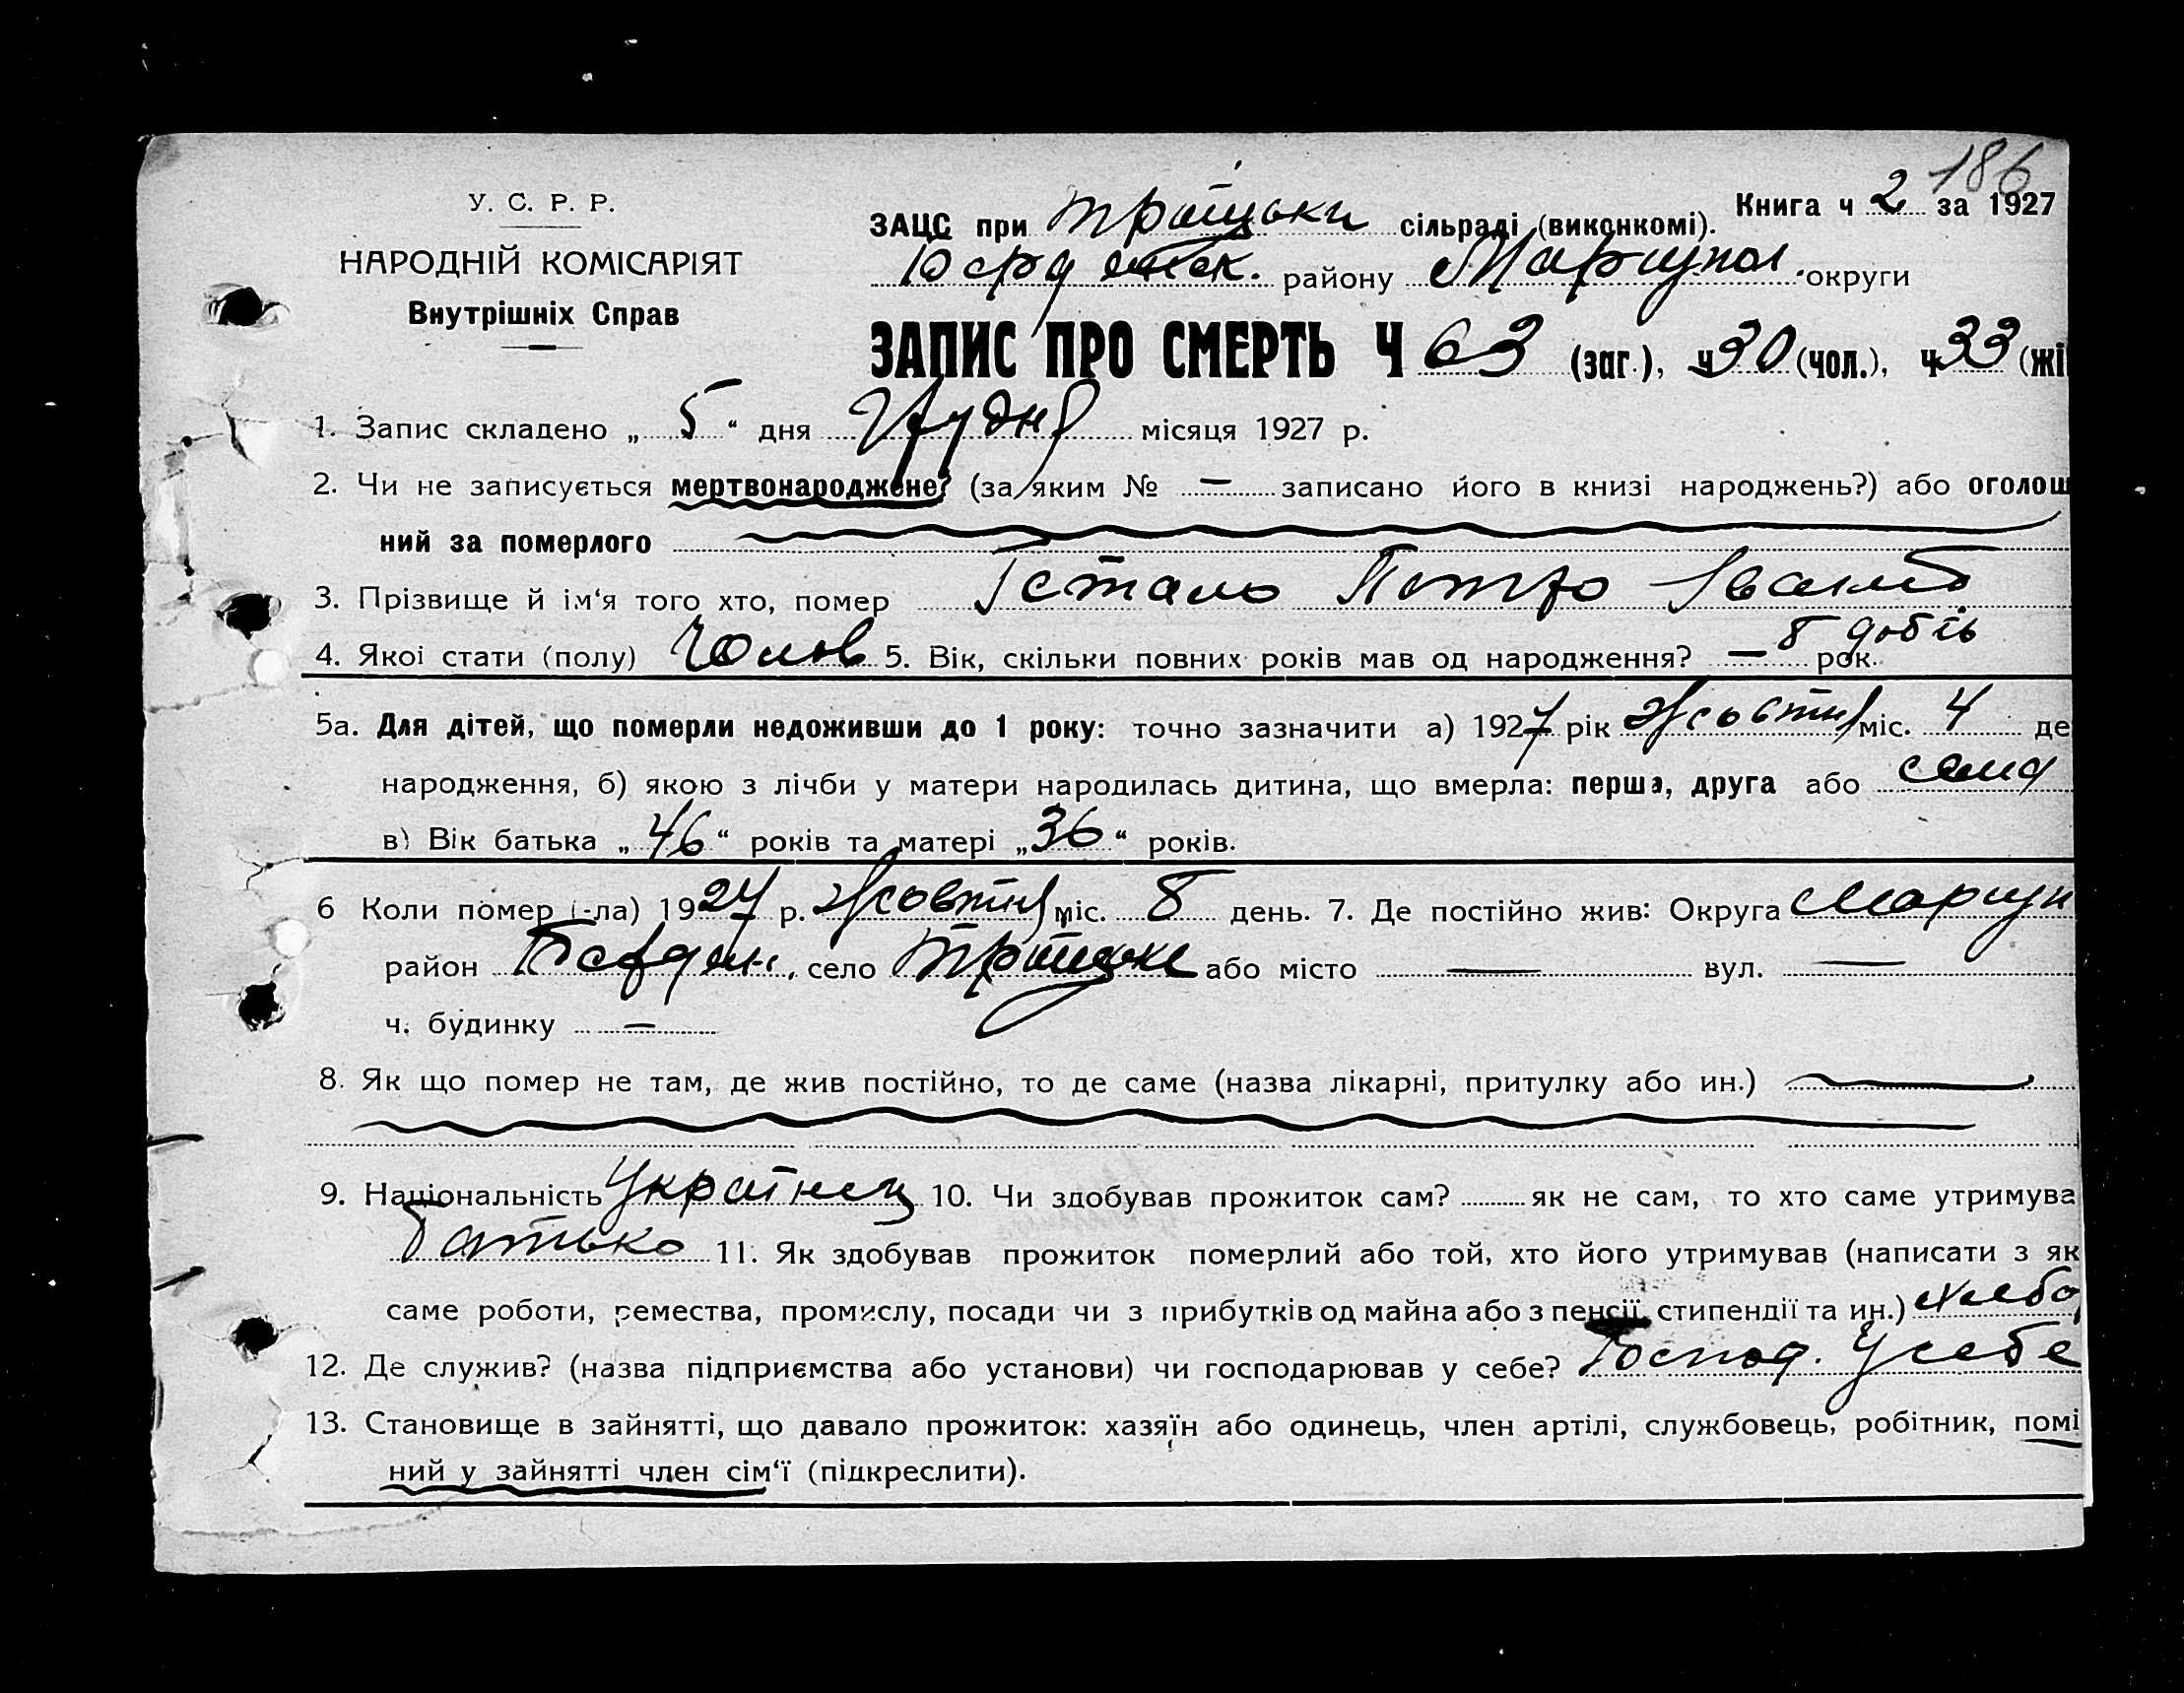 186
У. С. Р. Р.
НАРОДНІЙ КОМІСАРІЯТ
Внутрішніх Справ
Книга ч 2 за 1927
ЗАЦС при Троїцьки сільраді (виконкомі).
району Маріупол. округи
ЗАПИС ПРО СМЕРТЬ Ч 63 (заг.), ч 30 (чол.), ч 33 (жі
1. Запис складено „ 5 “ дня Грудня місяця 1927 р.
2. Чи не записується мертвонароджене? (за яким № — записано його в книзі народжень?) або оголош
ний за померлого
3. Прізвище й ім‘я того хто, помер Петро
4. Якої стати (полу) Чолов 5. Вік, скільки повних років мав од народження? — рок.
5а. Для дітей, що померли недоживши до 1 року: точно зазначити а) 1927 рік Жовтня міс. 4 де
народження, б) якою з лічби у матери народилась дитина, що вмерла: перша, друга або
в) Вік батька „ 46 “ років та матері „ 36 “ років.
6 Коли помер (-ла) 1927 р. Жовтня міс. 8 день. 7. Де постійно жив: Округа Маріуп
район село Троїцьке або місто — вул. —
ч. будинку —
8. Як що помер не там, де жив постійно, то де саме (назва лікарні, притулку або ин.)
9. Національність Українец 10. Чи здобував прожиток сам? як не сам, то хто саме утримува
Батько 11. Як здобував прожиток померлий або той, хто його утримував (написати з як
саме роботи, ремества, промислу, посади чи з прибутків од майна або з пенсії, стипендії та ин.) хлебо
12. Де служив? (назва підприємства або установи) чи господарював у себе? Господ. У себе
13. Становище в зайнятті, що давало прожиток: хазяїн або одинець, член артілі, службовець, робітник, помі
ний у зайнятті член сім‘ї (підкреслити).